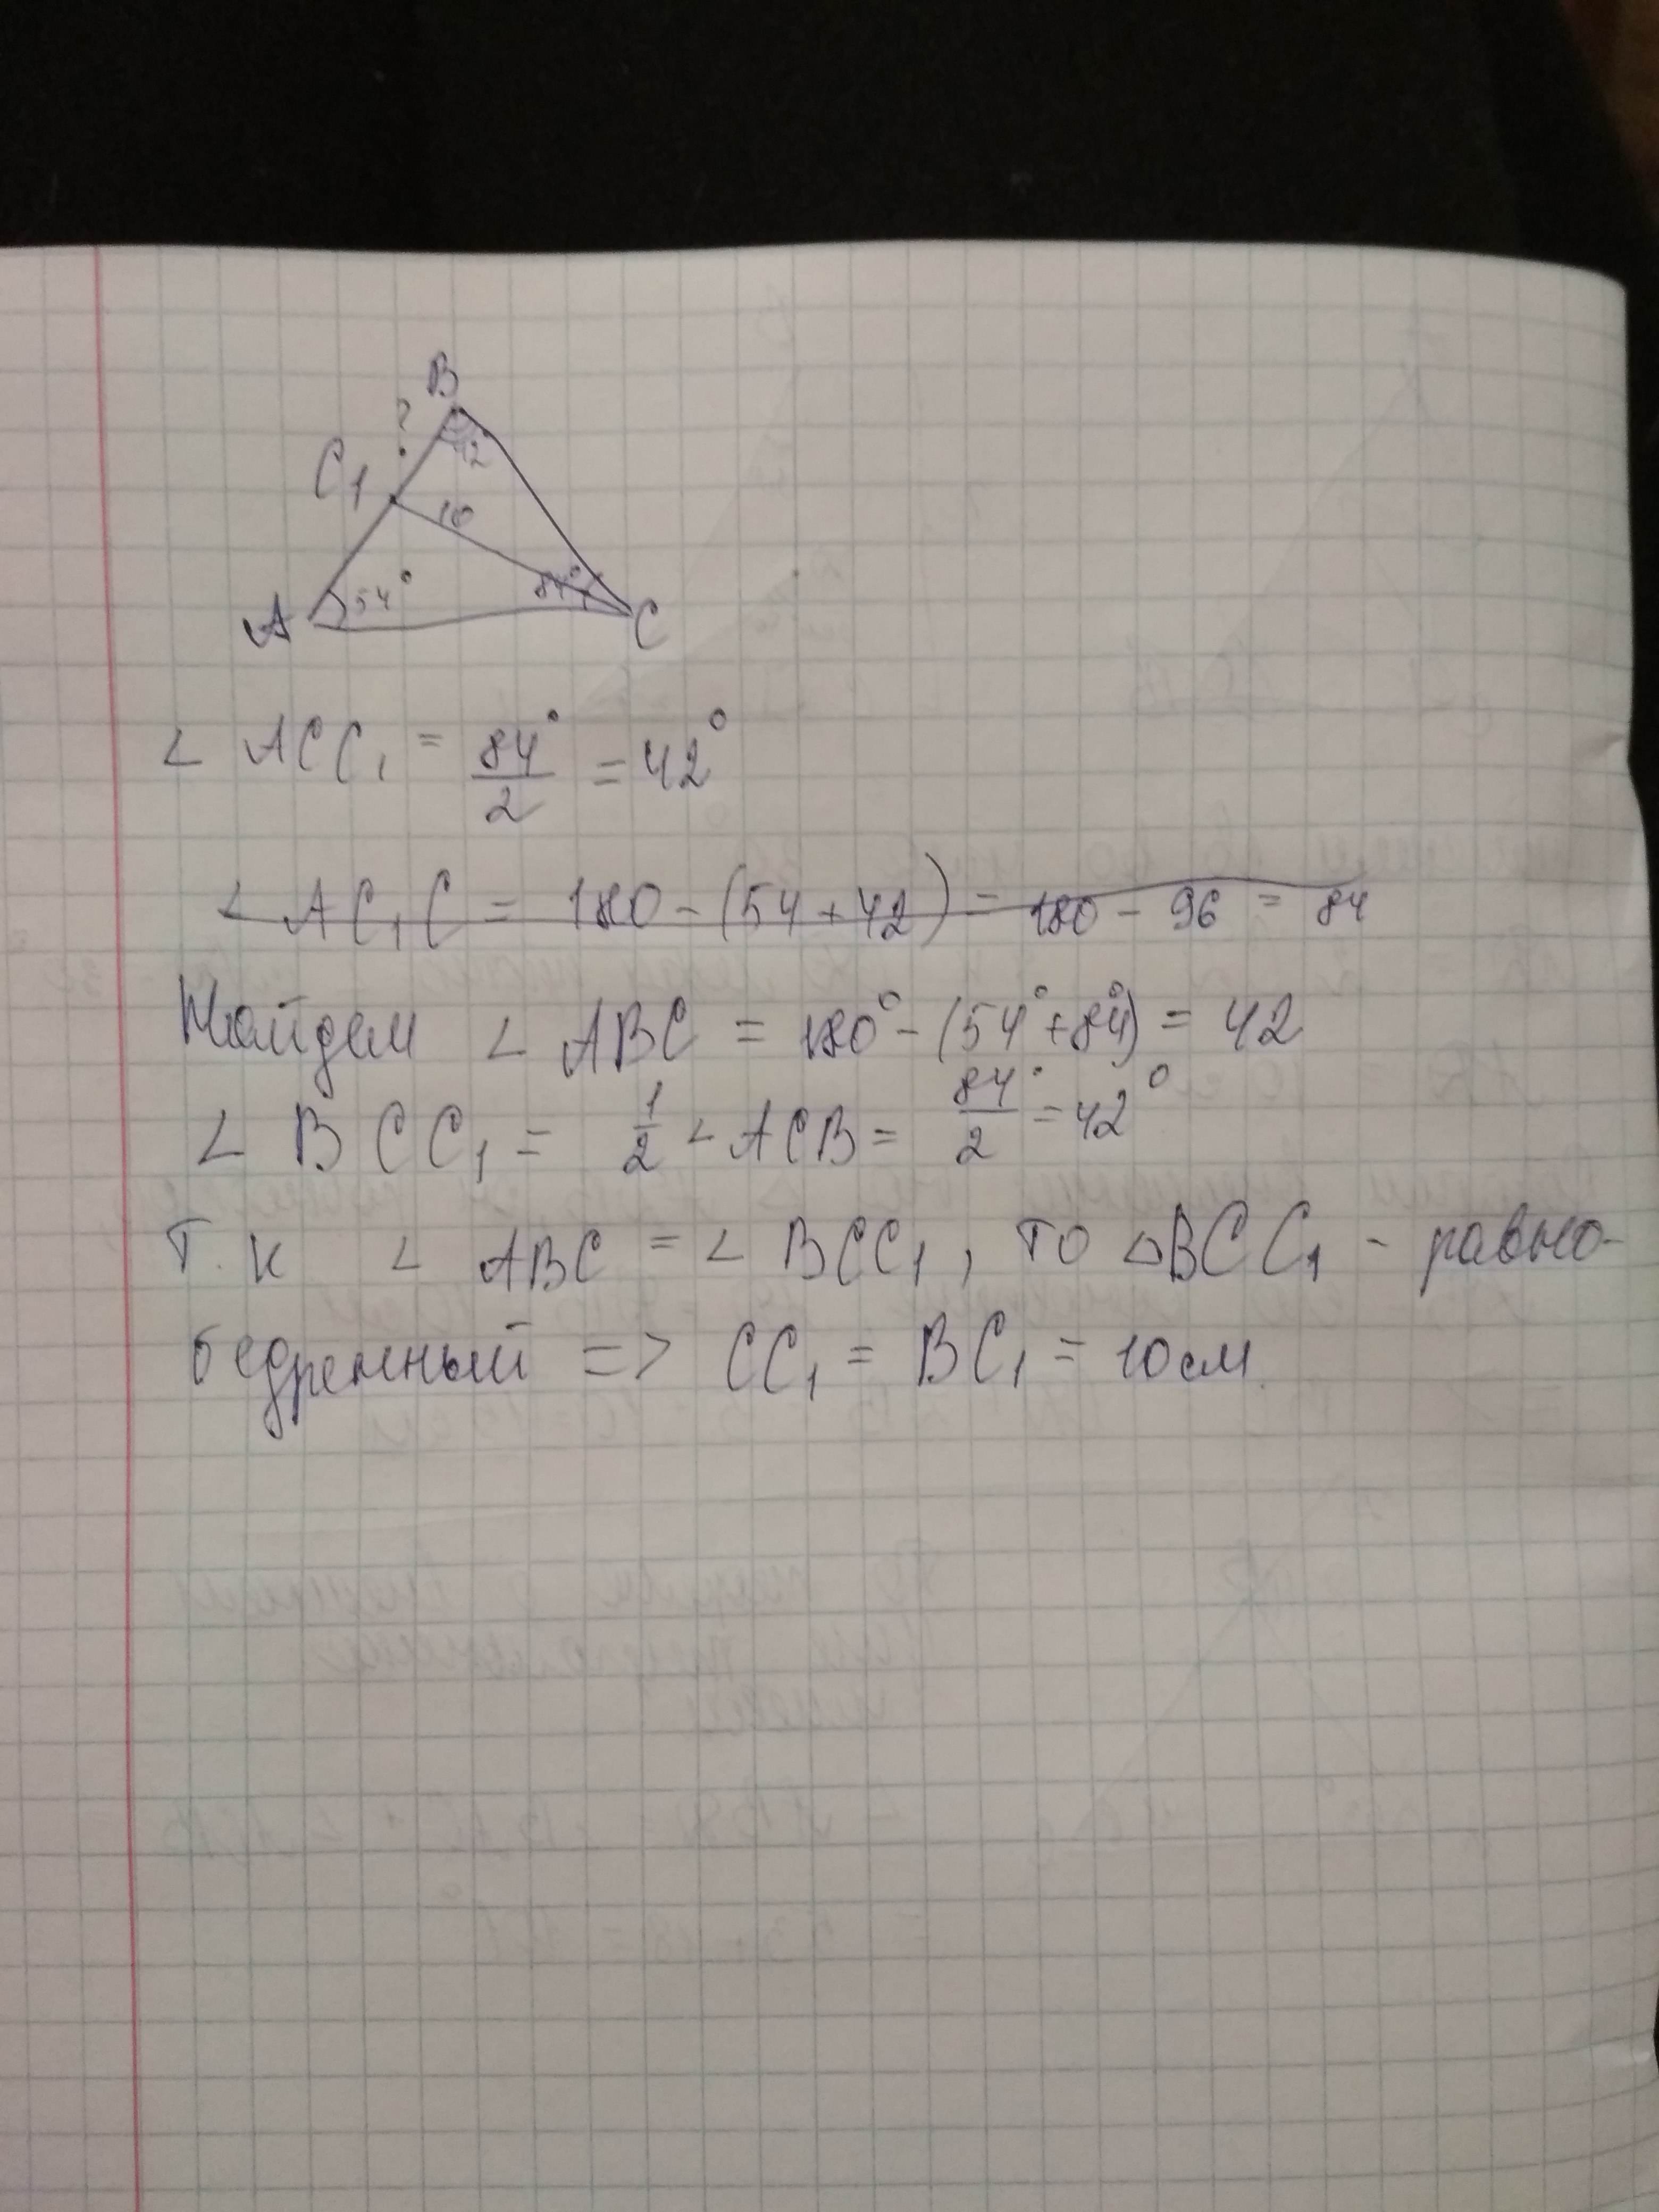 B
?
42°
C₁
10
54°
84°
A
C
∠ ACC₁ = 84°/2 = 42°
∠ AC₁C = 180 - (54 + 42) = 180 - 96 = 84
Найдем ∠ ABC = 180° - (54° + 84°) = 42
∠ BCC₁ = 1/2 ∠ ACB = 84°/2 = 42°
Т.к ∠ ABC = ∠ BCC₁, то △BCC₁ - равно-
бедренный => CC₁ = BC₁ = 10см.